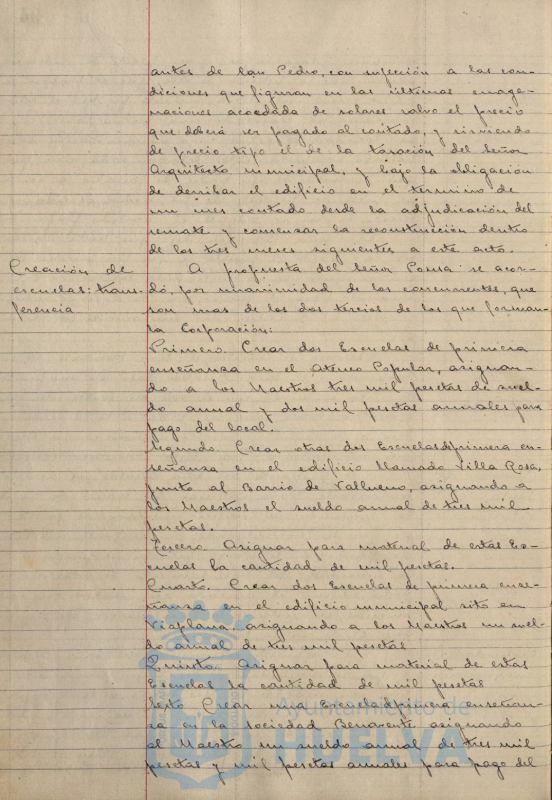 antes de San Pedro, con sujección a las con-
diciones que figuran en las últimas enage-
naciones acordada de solares salvo el precio
que deberá ser pagado al contado, y sirviendo
de precio tipo el de la tasación del Señor
Arquitecto municipal, y bajo la obligación
de derribar el edificio en el término de
un mes contado desde la adjudicación del
remate y comenzar la reconstrucción dentro
de los tres meses siguientes a este acto.
Creación de
escuelas: trans-
ferencia
A propuesta del Señor Ponsa se acor-
dó, por unanimidad de los concurrentes, que
son mas de los dos tercios de los que forman
la Corporación:
Primero. Crear dos Escuelas de primera
enseñanza en el Ateneo Popular, asignan-
do a los Maestros tres mil pesetas de suel-
do anual y dos mil pesetas annales para
pago del local.
Segundo. Crear otras dos Escuelas d primera en-
señanza en el edificio llamado Villa Rosa,
junto al Barrio de Valbueno, asignando a
los Maestros el sueldo anual de tres mil
pesetas.
Tercero. Asignar para material de estas Es-
cuelas la cantidad de mil pesetas.
Cuarto. Crear dos Escuelas de primera ense-
ñanza en el edificio municipal sito en
Viaplana asignando a los Maestros un suel-
do anual de tres mil pesetas
Quinto. Asignar para material de estas
Escuelas la cantidad de mil pesetas
Sexto Crear una Escuela d primera enseñan-
za en la Sociedad Benavente asignando
al Maestro un sueldo anual de tres mil
pesetas y mil pesetas anuales para pago del
Ayuntamiento de
HUELVA